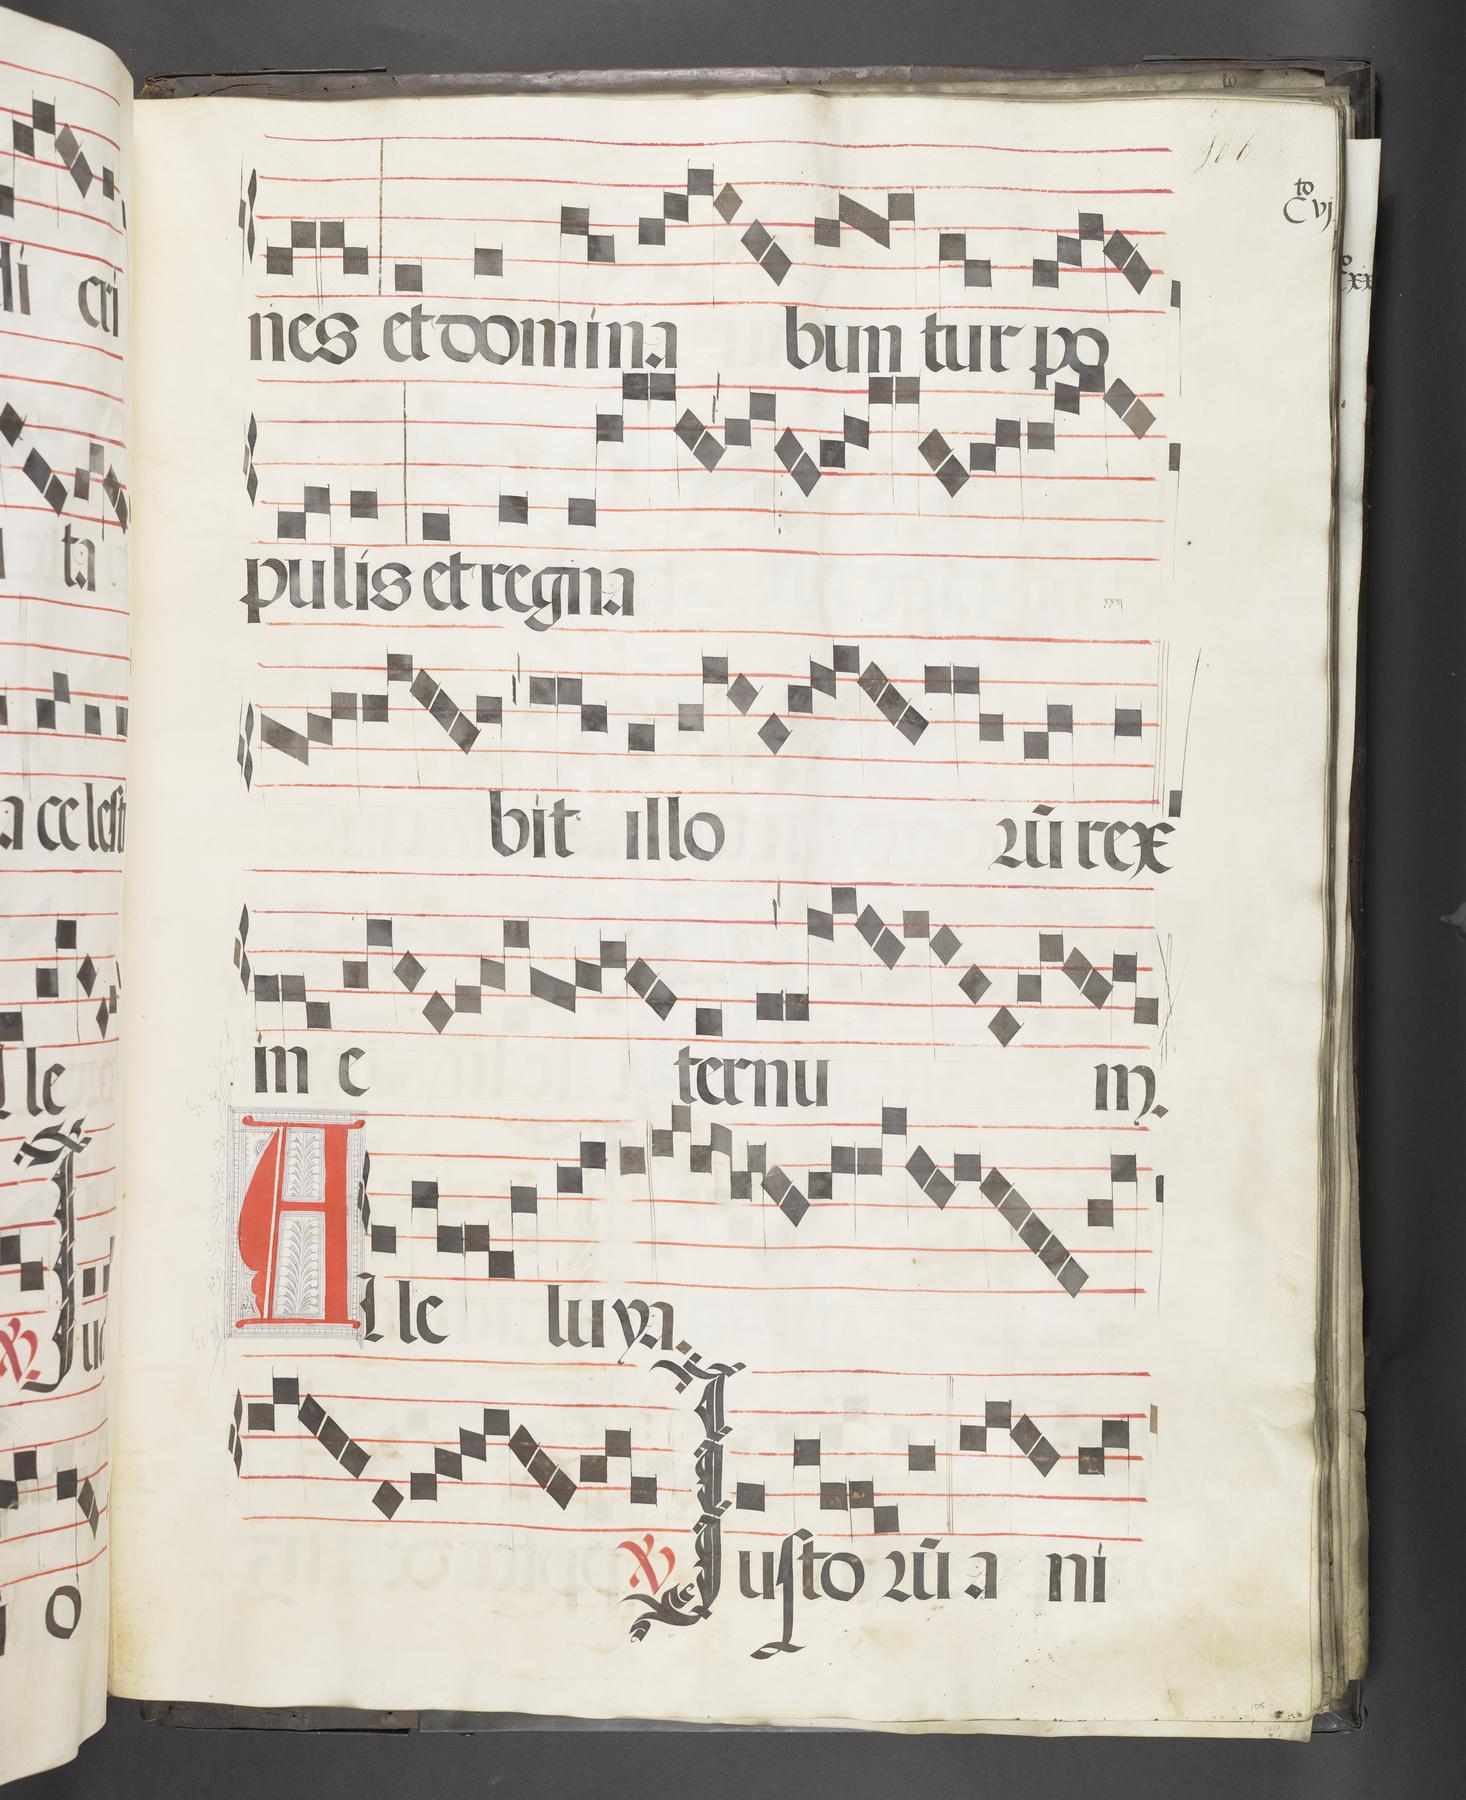 106
to
C vj
nes et domina bun tur po
pulis et regna
xxvj
bit illo rū rex
in e ternu m.
Alle luya.
℣. Justo rū a ni
105
di cri
ta
a celest
lle
℣. Ju
o